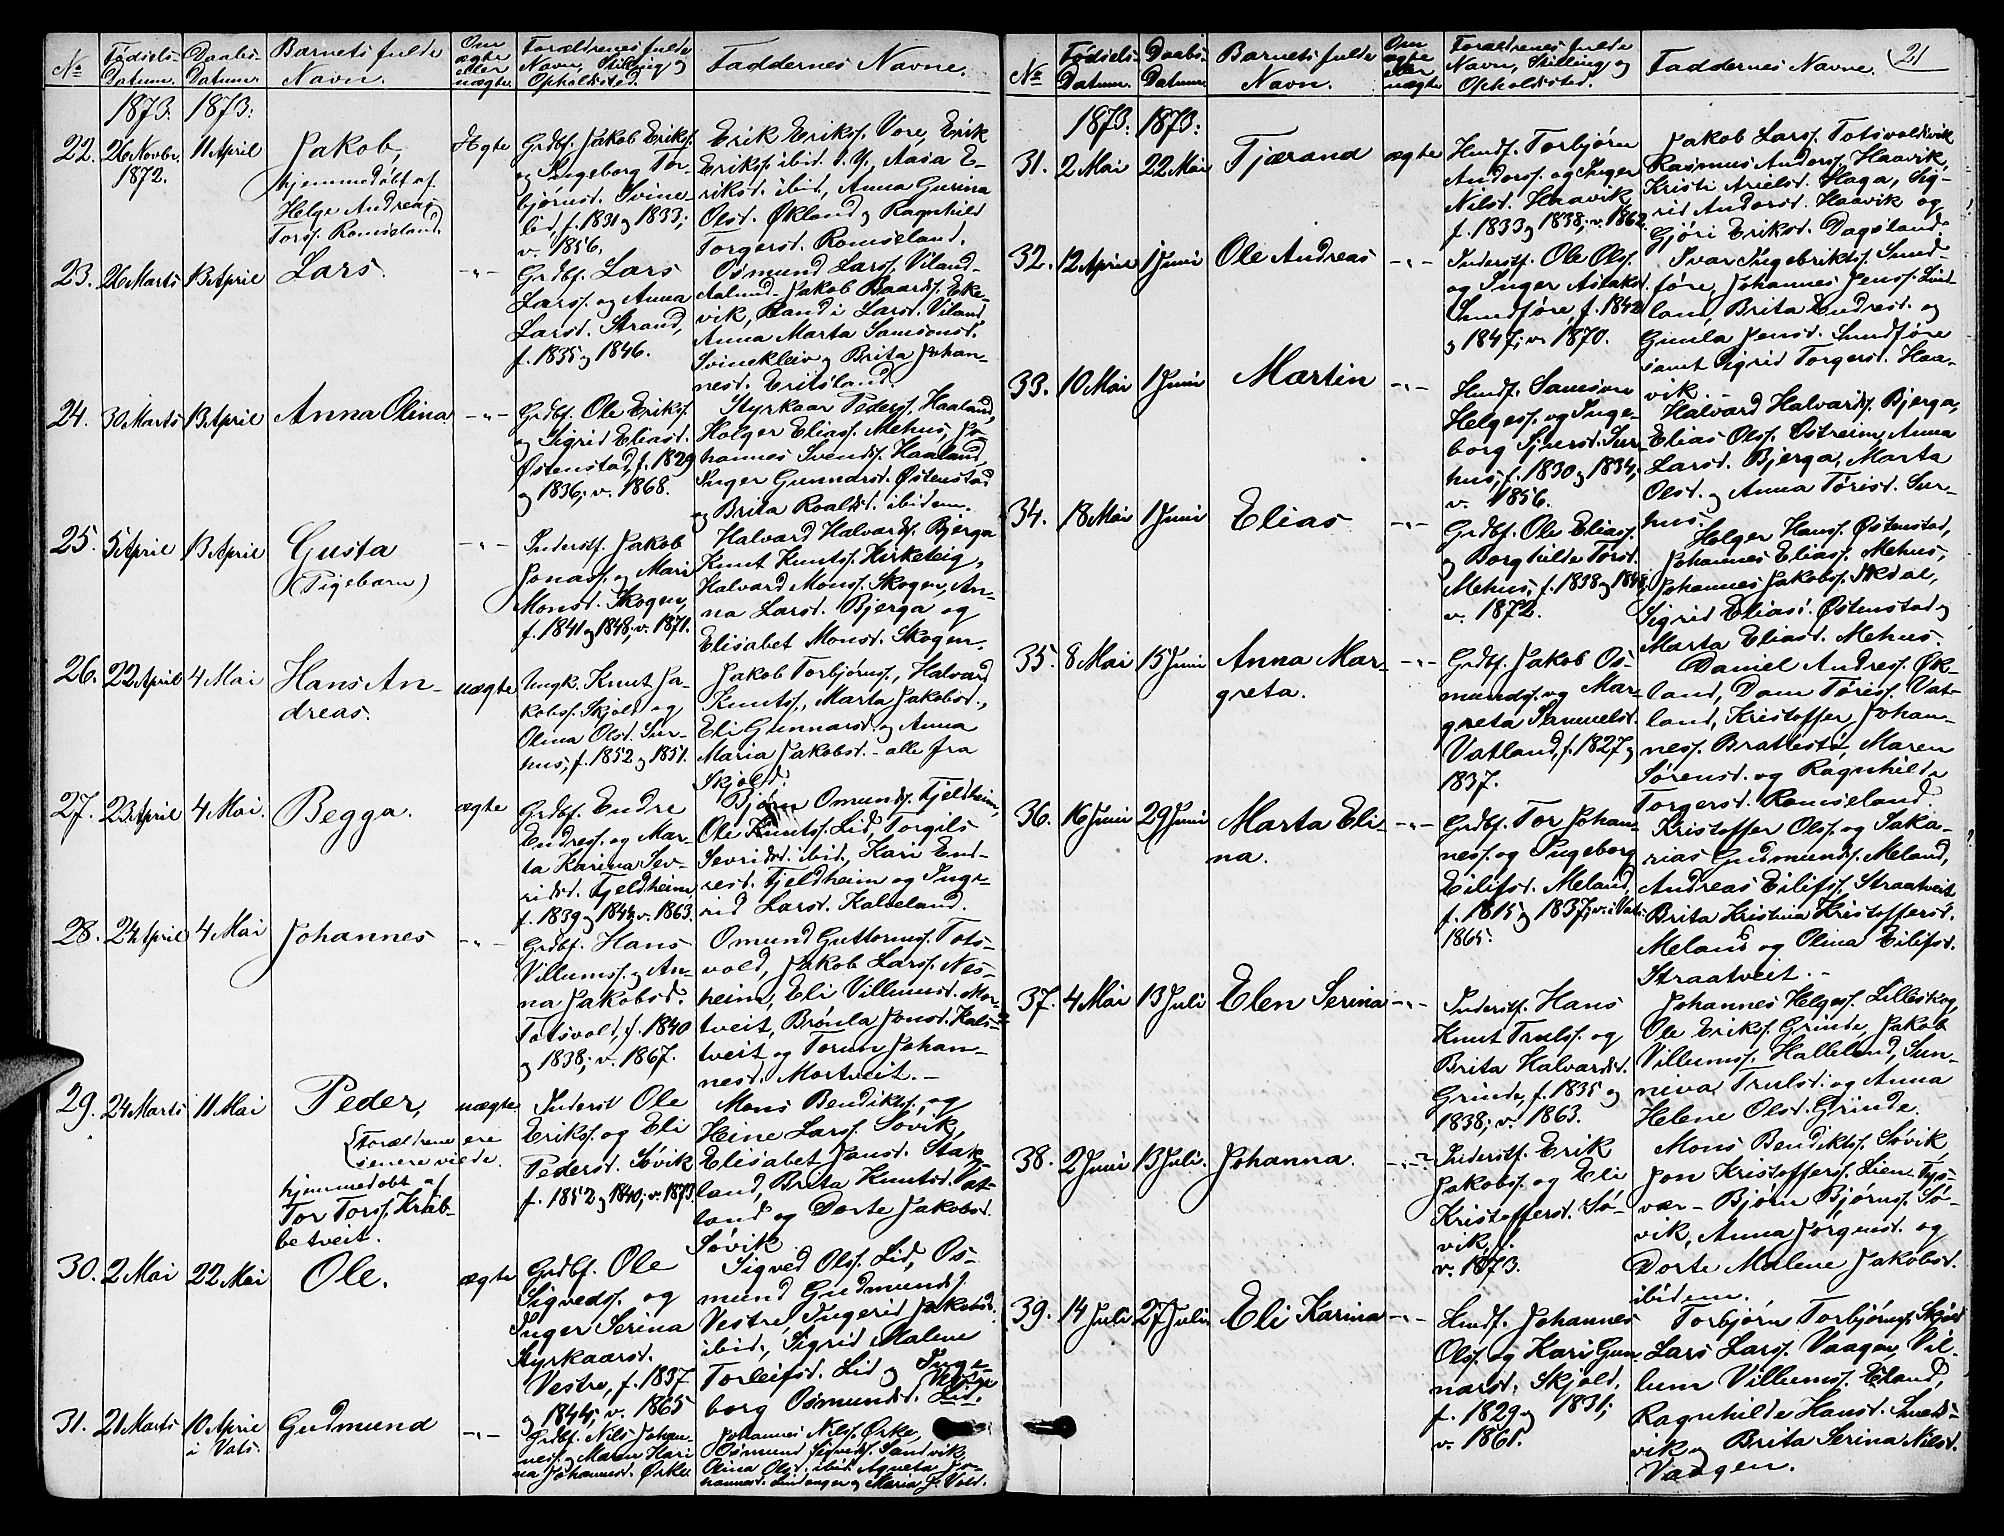 No Fødsels- Daabs- Barnets fulde Om Forældrenes fulde Faddernes Navne.
Datum. Datum. Navn. ægte eller uægte Navn, Stilling og Opholdssted.
1873. 1873:
22. 26 Novbr. 1872. 11 April Jakob,
hjemmedøbt af
Helge Andreas
Torss. Romseland.
Ægte
Grdbf. Jakob Erikss.
og Ingeborg Tor-
bjørnsd. Svine-
lid, f. 1831 og 1833;
v. 1856.
Erik Erikss. Vore, Erik
Erikss. ibid. S. Y., Aasa E-
riksd. ibid, Anna Gurina
Olsd. Økland og Ragnhild
Torgersd. Romseland.
23. 26 Marts 13 April Lars. -"-
Grdbf. Lars
Larss. og Anna
Larsd. Strand,
f. 1835 og 1846.
Osmund Larss. Viland-
Aalund, Jakob Baards. Eke-
vik, Randi Larsd. Viland
Anna Marta Samsonsd.
Svinekleiv og Brita Johan-
nesd. Eritsland.
24. 30 Marts 13 April Anna Olina -"-
Grdbf. Ole Erikss.
og Sigrid Eliasd.
Østenstad, f. 1829
og 1836; v. 1868.
Styrkaar Pederss. Haaland,
Holger Eliass. Mehus, Jo-
hannes Svends. Haaland
Inger Gunnarsd. Østenstad
og Brita Roaldsd. ibidem.
25. 5 April 13 April Gusta
(Pigebarn)
-"-
Inderstf. Jakob
Jonass. og Mari
Monsd. Skogen,
f. 1841 og 1848; v. 1871.
Halvard Halvards. Bjerga
Knut Knutss. Kirketeig,
Halvard Monss. Skogen, An-
na Larsd. Bjerga og
Elisabet Monsd. Skogen.
26. 22 April 4 Mai Hans An-
dreas.
uægte
Ungk. Knut Ja-
kobss. Skjold og
Olina Olsd. Sur-
hus, f. 1852 og 1851.
Jakob Torbjørnss., Halvard
Knutss., Marta Jakobsd.,
Eli Gunnarsd. og Anna
Maria Jakobsd. - alle fra
Skjold.
27. 23 April 4 Mai. Begga. ægte
Grdbf. Endre
Endress. og Mar-
ta Karina Sev-
ridsd. Fjeldheim,
f. 1839 og 1844; v. 1863.
Bjørn Omunds. Fjeldheim,
Ole Knutss. Lid, Torgils
Sevridsd. ibid., Kari End-
resd. Fjeldheim og Inge-
rid Larsd. Kalveland.
28. 24 April 4 Mai Johannes -"-
Grdbf. Hans
Villumss. og An-
na Jakobsd.
Totsvold, f. 1840
og 1838; v. 1867.
Omund Guttormss. Tots-
vold, Jakob Larss. Nes-
heim, Eli Villumsd. Mor-
tveit, Brønla Jonsd. Kals-
tveit og Torun Johan-
nesd. Mortveit. -
29. 24 Marts 11 Mai Peder,
(Forældrene ere
senere viede.
hjemmedøbt af
Tor Torss. Krab-
betveit.
uægte
Inderst Ole
Erikss. og Eli
Pedersd. Søvik
f. 1852 og 1840; v. 1873.
Mons Bendikss. og
Heine Larss. Søvik,
Elisabet Jonsd. Stak-
land, Brita Knutsd. Vat-
land og Dorte Jakobsd.
Søvik
30. 2 Mai 22 Mai Ole. ægte
Grdbf. Ole
Sigvedss. og
Inger Serina
Styrkaarsd.
Vestre, f. 1837
og 1844; v. 1865
Sigved Olss. Lid, Os-
mund Gudmunds.
Vestre, Ingerid Jakobsd.
ibid., Sigrid Malene
Torleifsd. Lid og Inge-
borg Osmundsd. Vestre
31. 21 Marts 10 April
i Vats.
Gudmund -"-
Grdbf. Nils Johan-
ness. og Maren Kari
na Johannesd. Ørke
Johannes Nilss. Ørke,
Osmund Sigvedss. Sandvik
Olina Olsd. ibid. Agneta Jo-
hannesd. og Maria J. Vold.
No Fødsels- Daabs- Barnets fulde Om Forældrenes fulde Faddernes Navne. 21
Datum. Datum Navn. ægte eller uægte Navn, Stilling og Opholdssted.
1873: 1873:
31. 2 Mai 22 Mai Tjærand ægte
Husf. Torbjørn
Anderss. og Inger
Nilsd. Haavik
f. 1833 og 1838; v. 1862.
Jakob Larss. Totsvoldsvik
Rasmus Anderss. Haavik,
Kristi Arielsd. Haga, Sig-
rid Andersd. Haavik og
Gjøri Eriksd. Dagsland.
32. 12 April 1 Juni Ole Andreas -"-
Inderstf. Ole Olss.
og Inger Aslaksd.
Sundføre f. 1842
og 1847; v. 1870.
Ivar Ingebriktss. Sund-
føre, Johannes Jenss. Lind-
land, Brita Endresd. og
Gunla Jensd. Sundføre
samt Sigrid Torgersd. Haa-
vik. -
33. 10 Mai 1 Juni Martin -"-
Husf. Samson
Helgess. og Inge-
borg Sjursd. Sur-
hus, f. 1830 og 1834;
v. 1856.
Halvard Halvards. Bjerga,
Elias Olss. Østreim, Anna
Larsd. Bjerga, Marta
Olsd. og Anna Tørisd. Sur-
hus.
34. 18 Mai 1 Juni Elias -"-
Grdbf. Ole Eliass.
og Borghilde Torsd.
Mehus, f. 1838 og 1848;
v. 1872.
Holger Hanss. Østenstad,
Johannes Eliass. Mehus,
Johannes Jakobss. Økdal,
Sigrid Eliasd. Østenstad og
Marta Eliasd. Mehus.
35. 8 Mai 15 Juni Anna Mar-
greta.
-"-
Grdbf. Jakob Os-
munds. og Mar-
greta Samuelsd.
Vatland, f. 1827 og
1837.
Daniel Andress. Øk-
land, Dam Tøriss. Vat-
land, Kristoffer Johan-
ness. Brattestø, Maren
Sørensd. og Ragnhilde
Torgersd. Romseland.
36. 16 Juni 29 Juni Marta Eli-
na.
-"-
Grdbf. Tor Johan-
ness. og Ingeborg
Eilifsd. Meland,
f. 1815 og 1837; v. i Vats
1865.
Kristoffer Olss. og Saka-
rias Gudmunds. Meland,
Andreas Eilifss. Straatveit
Brita Kristina Kristoffersd.
Meland og Olina Eilifsd.
Straatveit. -
37. 4 Mai 13 Juli Elen Serina -"-
Inderstf. Hans
Knut Trulss. og
Brita Halvardsd.
Grinde, f. 1835 og
1838; v. 1863.
Johannes Helgess. Lilleskog,
Ole Erikss. Grinde, Jakob
Villumss. Halleland, Sun-
niva Trulsd. og Anna
Helene Olsd. Grinde.
38. 2 Juni 13 Juli. Johanna. -"-?
Inderstf. Erik
Jakobss. og Eli
Kristoffersd. Sø-
vik, f.
v. 1873.
Mons Bendiktss. Søvik,
Jon Kristofferss. Lien-Tys-
vær - Bjørn Bjørnss. Sø-
vik, Anna Jørgensd. og
Dorte Malene Jakobsd.
ibidem.
39. 14 Juli 27 Juli Eli Karina -"-
Husf. Johannes
Olss. og Kari Gun-
narsd. Skjold,
f. 1829 og 1831;
v. 1861.
Torbjørn Torbjørnss. Skjold
Lars Larss. Vaagen, Vil-
lum Villumss. Eland,
Ragnhilde Hansd. Smeds-
vik og Brita Serina Nilsd.
Vaagen.